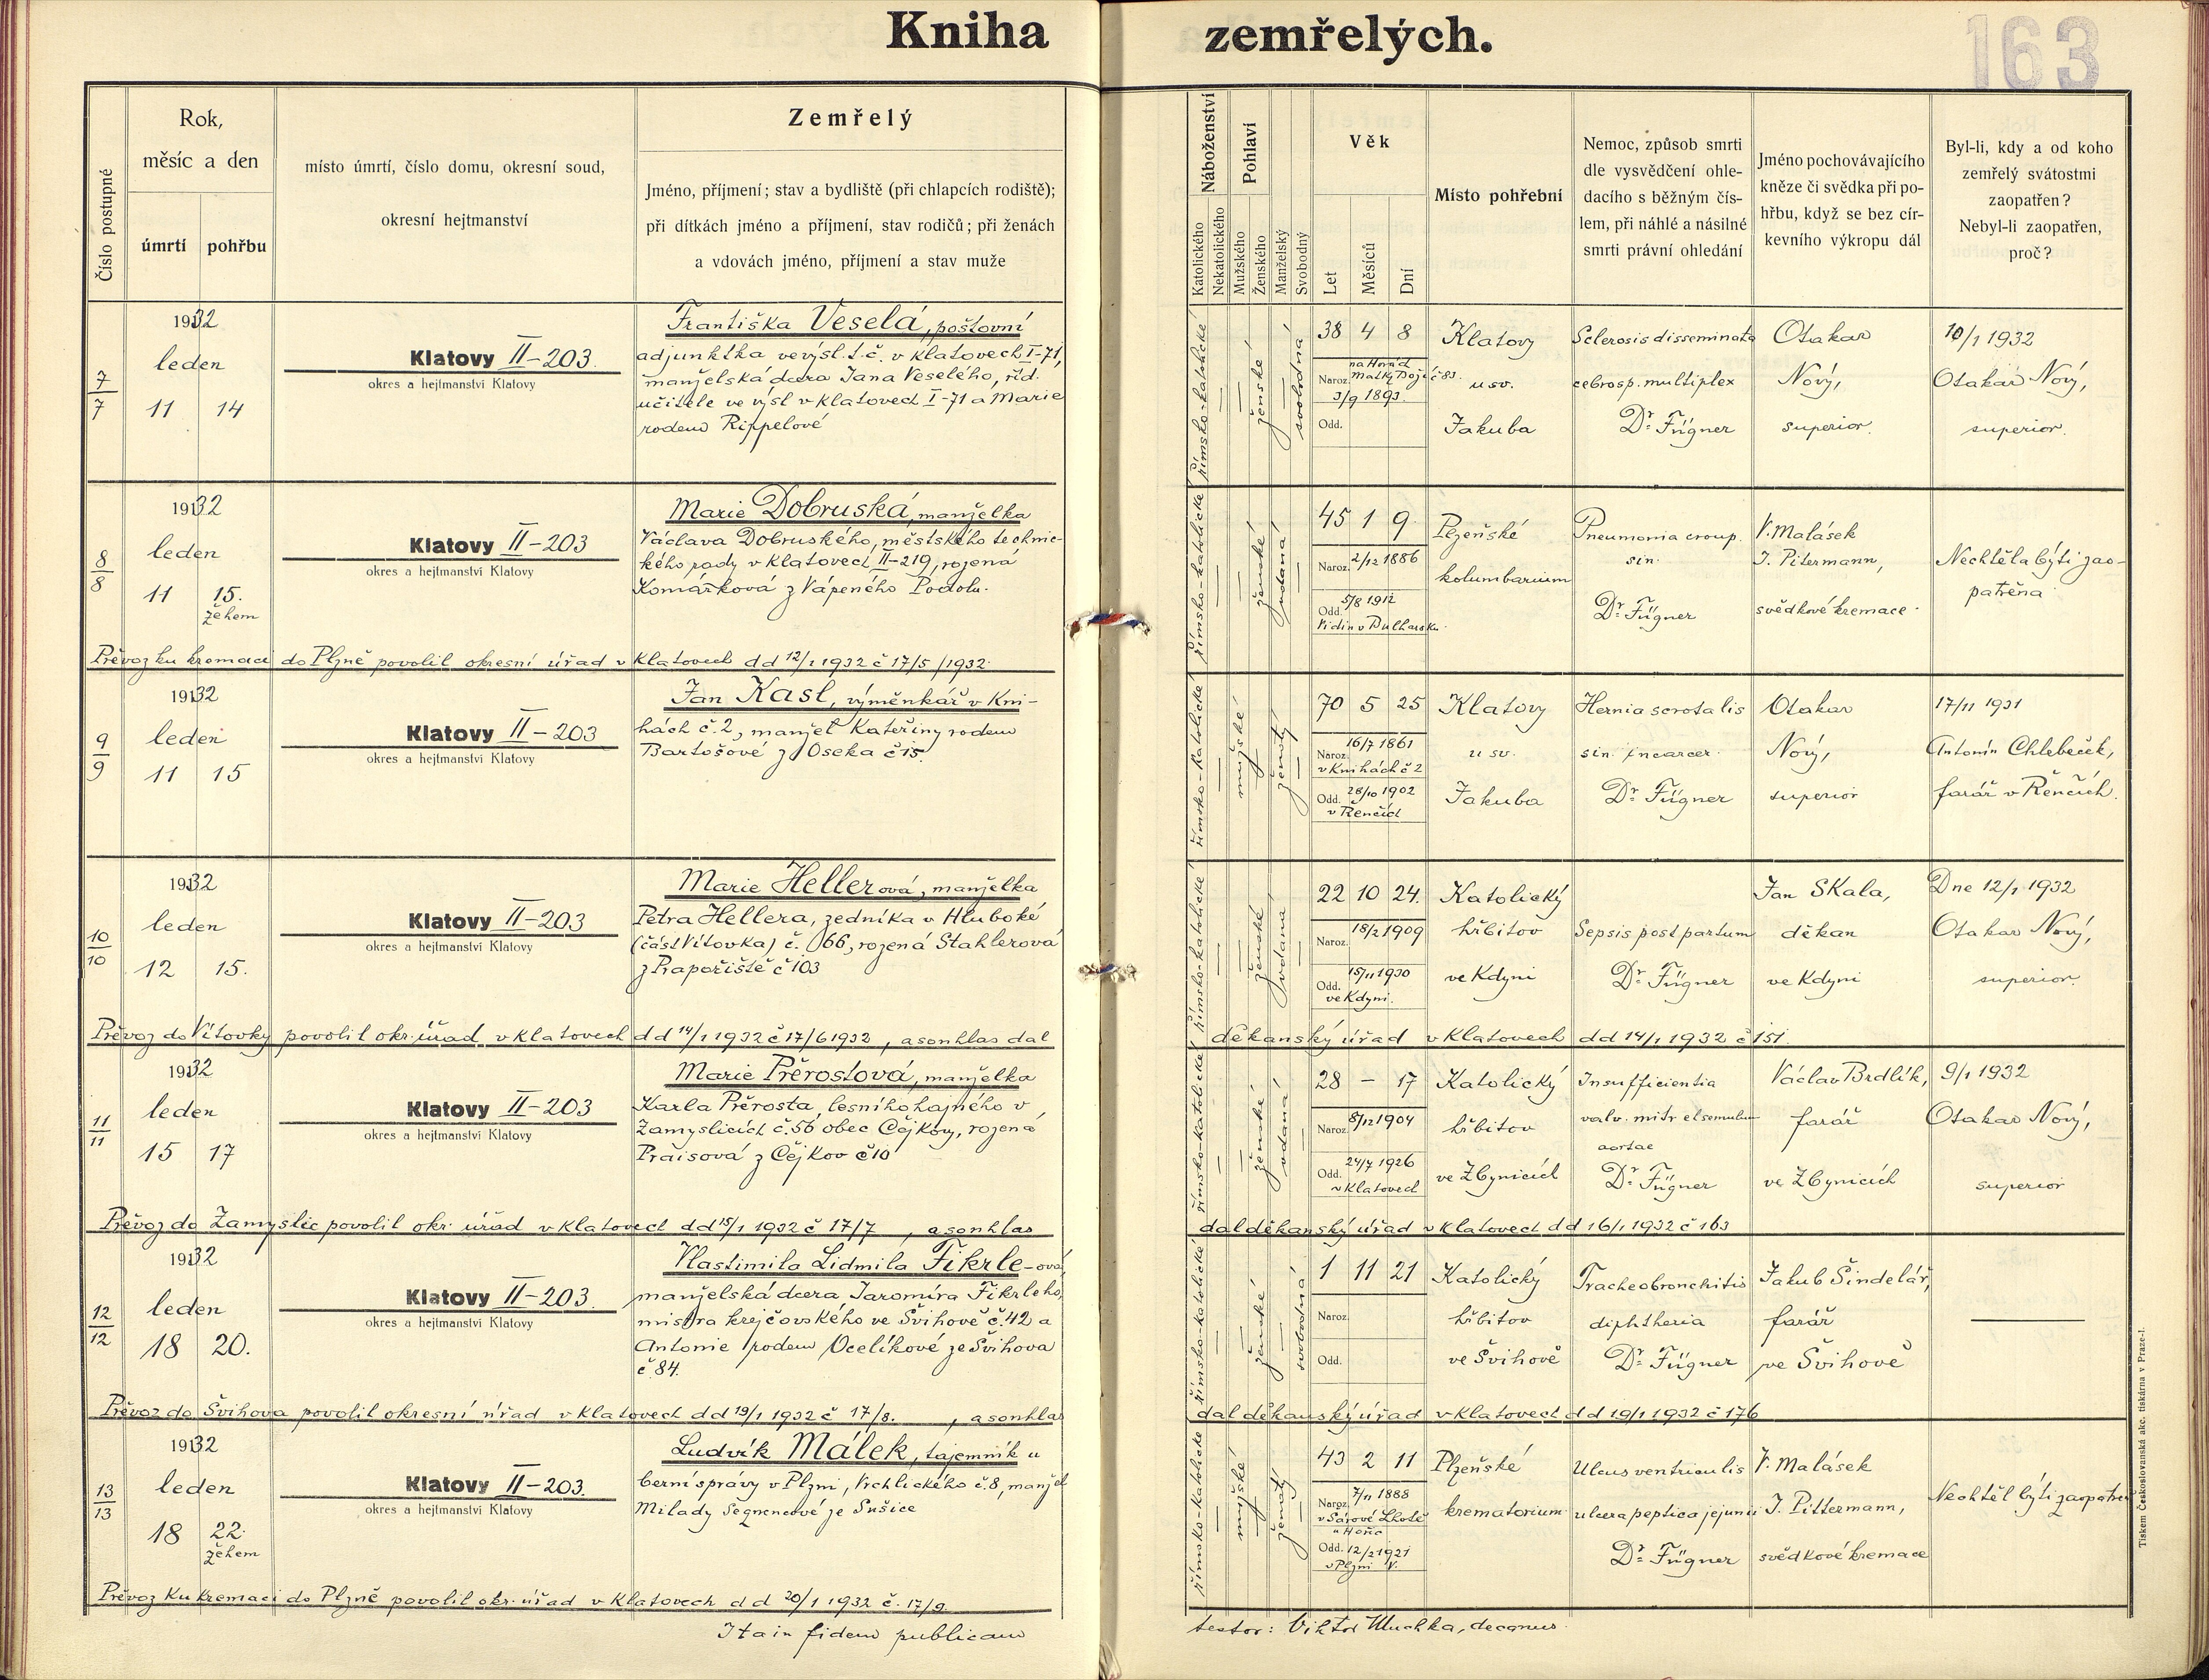 Kniha zemřelých.
163
Číslo postupné
Rok,
měsíc a den
úmrtí
pohřbu
místo úmrtí, číslo domu, okresní soud,
okresní hejtmanství
Zemřelý
Jméno, příjmení; stav a bydliště (při chlapcích rodiště);
při dítkách jméno a příjmení, stav rodičů; při ženách
a vdovách jméno, příjmení a stav muže
Náboženství
Katolického
Nekatolického
Pohlaví
Mužského
Ženského
Manželský
Svobodný
Věk
Let
Měsíců
Dní
Místo pohřební
Nemoc, způsob smrti
dle vysvědčení ohle-
dacího s běžným čís-
lem, při náhlé a násilné
smrti právní ohledání
Jméno pochovávajícího
kněze či svědka při po-
hřbu, když se bez cír-
kevního výkropu dál
Byl-li, kdy a od koho
zemřelý svátostmi
zaopatřen?
Nebyl-li zaopatřen,
proč?
7
7
1932
leden
11 14
Klatovy II-203.
okres a hejtmanství Klatovy
Františka Veselá, poštovní
adjunktka ve výsl. t.č. v Klatovech I-71,
manželská dcera Jana Veselého, říd.
učitele ve výsl v Klatovech I-71 a Marie
rodem Rippelové
římsko-katolické
ženské
svobodná
38 4 8
na Horách
Matky Boží č 83.
Naroz. 3/9 1893.
Odd.
Klatovy
u sv.
Jakuba
Sclerosis disseminata
cebrosp. multiplex
Dr. Fügner
Otakar
Nový,
superior.
10/1 1932
Otakar Nový,
superior.
8
8
1932
leden
11 15.
žehem
Klatovy II-203
okres a hejtmanství Klatovy
Marie Dobruská, manželka
Václava Dobruského, městského technic-
kého rady v Klatovech II-219, rozená
Komárková z Vápeného Podolu.
římsko-katolické
ženské
vdaná
45 1 9.
Naroz. 2/12 1886
5/8 1912
Odd.
Vidin v Bulharsku.
Plzeňské
kolumbarium
Pneumonia croup.
sin.
Dr. Fügner
V. Malásek
J. Pitermann,
svědkové kremace.
Nechtěla býti zao-
patřena
Převoz ku kremaci do Plzně povolil okresní úřad v Klatovech dd 12/1 1932 č 17/5 /1932.
9
9
1932
leden
11 15
Klatovy II-203
okres a hejtmanství Klatovy
Jan Kasl, výměnkář v Kni-
hách č.2, manžel Kateřiny rodem
Bartošové z Oseka č 15.
římsko-katolické
mužské
ženatý
70 5 25
16/7 1861
Naroz.
v Knihách č 2
28/10 1902
Odd.
v Řenčích
Klatovy
u sv.
Jakuba
Hernia scrotalis
sin. incarcer.
Dr. Fügner
Otakar
Nový,
superior
17/11 1931
Antonín Chlebeček,
farář v Řenčích.
10
10
1932
leden
12 15.
Klatovy II-203
okres a hejtmanství Klatovy
Marie Hellerová, manželka
Petra Hellera, zedníka v Hluboké
(část Vítovka) č. 66, rozená Stahlerová
z Prapořiště č 103
římsko-katolické
ženské
vdaná
22 10 24.
Naroz. 18/2 1909
15/11 1930
Odd.
ve Kdyni.
Katolický
hřbitov
ve Kdyni
Sepsis post partum
Dr. Fügner
Jan Skala,
děkan
ve Kdyni
Dne 12/1 1932
Otakar Nový,
superior.
Převoz do Vítovky povolil okr. úřad v Klatovech dd 14/1 1932 č 17/6 1932, a souhlas dal děkanský úřad v Klatovech dd 14/1 1932 č 151.
11
11
1932
leden
15 17
Klatovy II-203
okres a hejtmanství Klatovy
Marie Přerostová, manželka
Karla Přerosta, lesního hajného v
Zamyslicích č.56 obec Čejkov, rozená
Praisová z Čejkov č 10
římsko-katolické
ženské
vdaná
28 – 17
Naroz. 8/12 1904
24/7 1926
Odd.
v Klatovech
Katolický
hřbitov
ve Zbynicích
Insufficientia
valv. mitr et semulun
aortae
Dr. Fügner
Václav Brdlík,
farář
ve Zbynicích
9/1 1932
Otakar Nový,
superior
Převoz do Zamyslic povolil okr. úřad v Klatovech dd 15/1 1932 č 17/7, a souhlas dal děkanský úřad v Klatovech dd 16/1 1932 č 163
12
12
1932
leden
18 20.
Klatovy II-203.
okres a hejtmanství Klatovy
Vlastimila Lidmila Fikrle-ová,
manželská dcera Jaromíra Fikrleho,
mistra krejčovského ve Švihově č.42 a
Antonie rodem Ocelíkové ze Švihova
č 84.
římsko-katolické
ženské
svobodná
1 11 21
Naroz.
Odd.
Katolický
hřbitov
ve Švihově
Tracheobronchitis
diphtheria
Dr. Fügner
Jakub Šindelář,
farář
ve Švihově
Převoz do Švihova povolil okresní úřad v Klatovech dd 19/1 1932 č 17/8., a souhlas dal děkanský úřad v Klatovech dd 19/1 1932 č 176
13
13
1932
leden
18 22.
žehem
Klatovy II-203.
okres a hejtmanství Klatovy
Ludvík Málek, tajemník u
berní správy v Plzni, Vrchlického č.8, manžel
Milady ze Sušice
římsko-katolické
mužské
ženatý
43 2 11
7/11 1888
Naroz.
Odd. 12/2 1921
v Plzni V.
Plzeňské
krematorium
Ulcus ventriculis
ulcera peptica jejunii
Dr. Fügner
V. Malásek
J. Pittermann,
svědkové kremace
Nechtěl býti zaopatřen
Převoz ku kremaci do Plzně povolil okr. úřad v Klatovech dd 20/1 1932 č. 17/9.
Ita in fidem publicam
testor: Viktor, decanus.
Tiskem Českoslovanská akc. tiskárna v Praze-I.